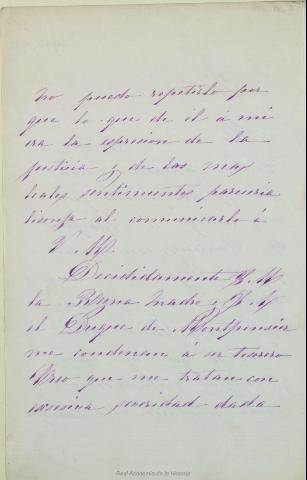 no puedo repetirlo por
que lo que de él á mi
era la espresion de la
justicia y de las mas
leales sentimientos pareceria
lisonja al comunicarlo á
V. M.
Decididamente S. M.
la Reyna Madre y S. A.
el Duque de Montpensier
me condenan á ser tesorero
Creo que me tratan con
escesiva severidad dada
Real Academia de la Historia